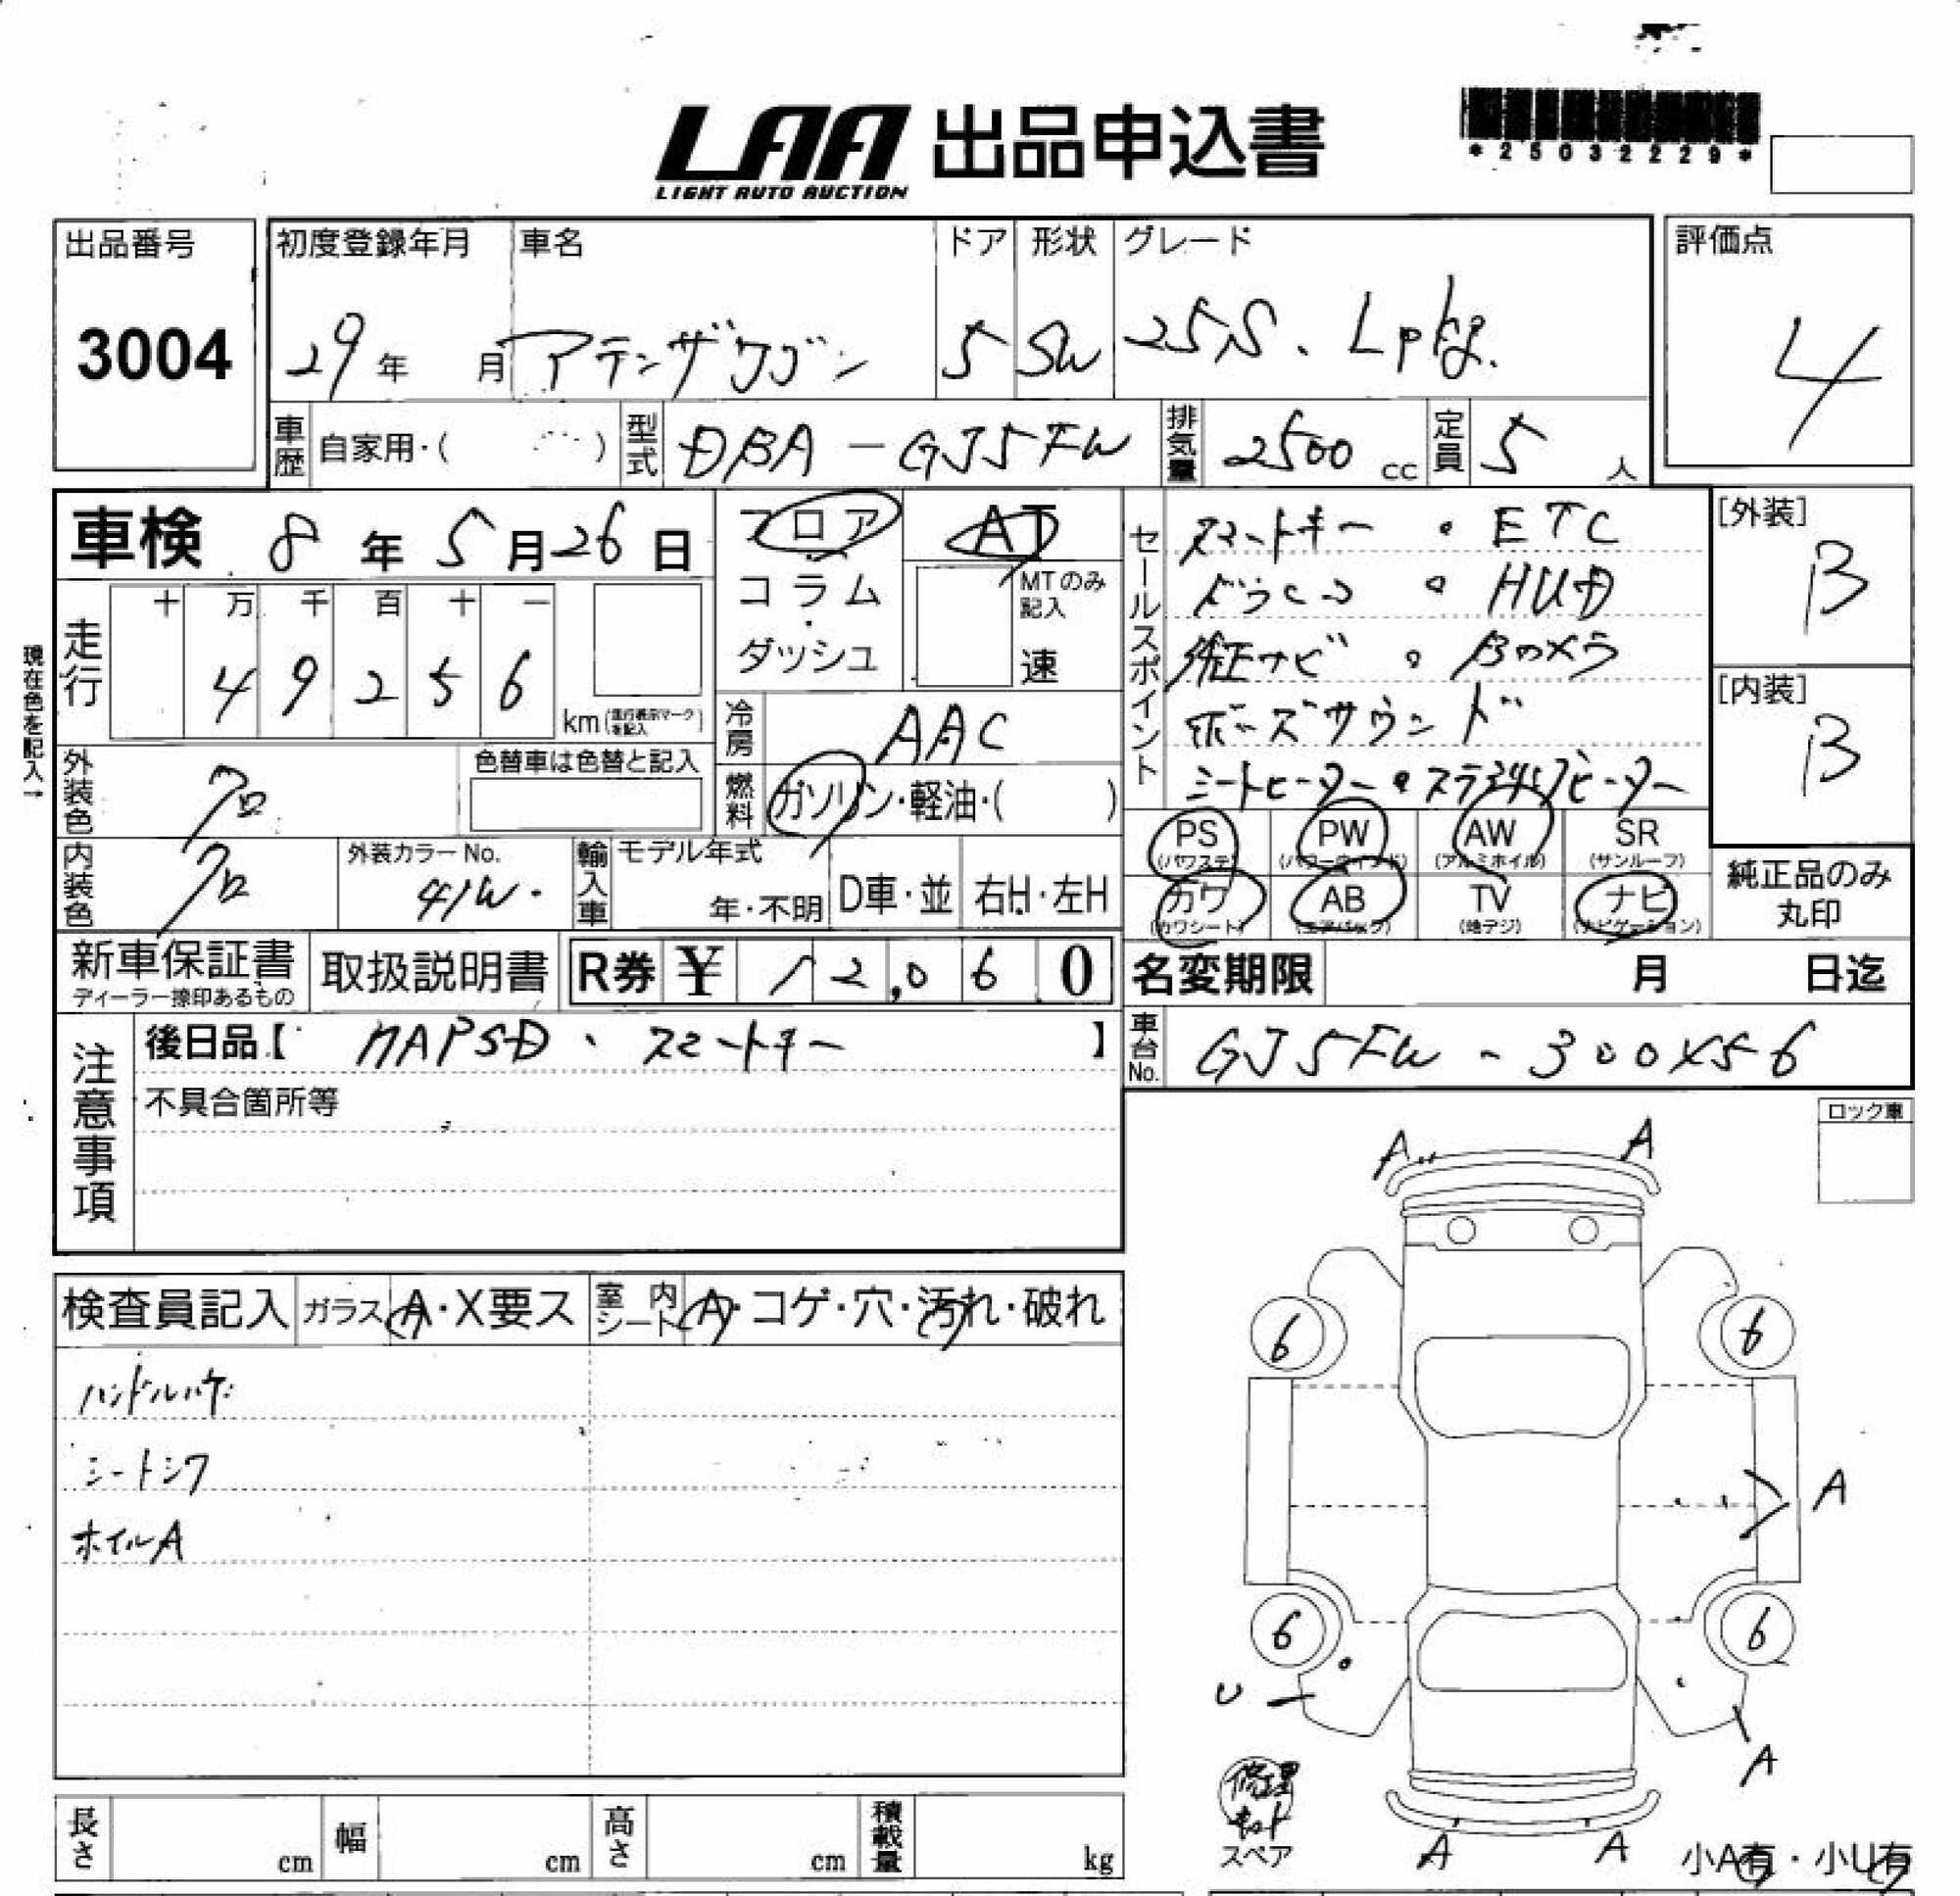 LAA 出品申込書
LIGHT AUTO AUCTION
*25032229*
出品番号
3004
初度登録年月
29年 月
車名
アテンザワゴン
ドア
5
形状
SW
グレード
25S. Lpkg.
評価点
4
車歴 自家用・( )
型式 DBA-GJ5FW
排気量 2500 cc
定員 5 人
車検 8年5月26日
フロア・コラム・ダッシュ
AT
MTのみ記入
速
セールスポイント
スマートキー ・ETC
ドラレコ ・HUD
純正ナビ ・Bカメラ
ボーズサウンド
シートヒーター・ステアリングヒーター
[外装]
B
[内装]
B
現在色を記入→
走行
十 万 千 百 十 一
4 9 2 5 6
km(走行表示マークを記入)
冷房 AAC
燃料 ガソリン・軽油・( )
外装色 クロ
色替車は色替と記入
内装色 クロ
外装カラーNo.
41W.
輸入車
モデル年式
年・不明
D車・並
右H・左H
PS (パワステ)
PW (パワーウインド)
AW (アルミホイル)
SR (サンルーフ)
カワ (カワシート)
AB (エアバック)
TV (地デジ)
ナビ (ナビゲーション)
純正品のみ丸印
新車保証書
ディーラー捺印あるもの
取扱説明書
R券 ¥ 12,060
名変期限 月 日迄
注意事項
後日品【 MAPSD、スマートキー 】
不具合箇所等
車台No. GJ5FW-300X56
ロック車
A A
検査員記入
ガラス A・X要ス
室内シート A・コゲ・穴・汚れ・破れ
ハンドルハゲ
シートシワ
ホイルA
6 6
A
6 6
U
A
修理キット
スペア
A A
小A有・小U有
長さ cm
幅 cm
高さ cm
積載量 kg